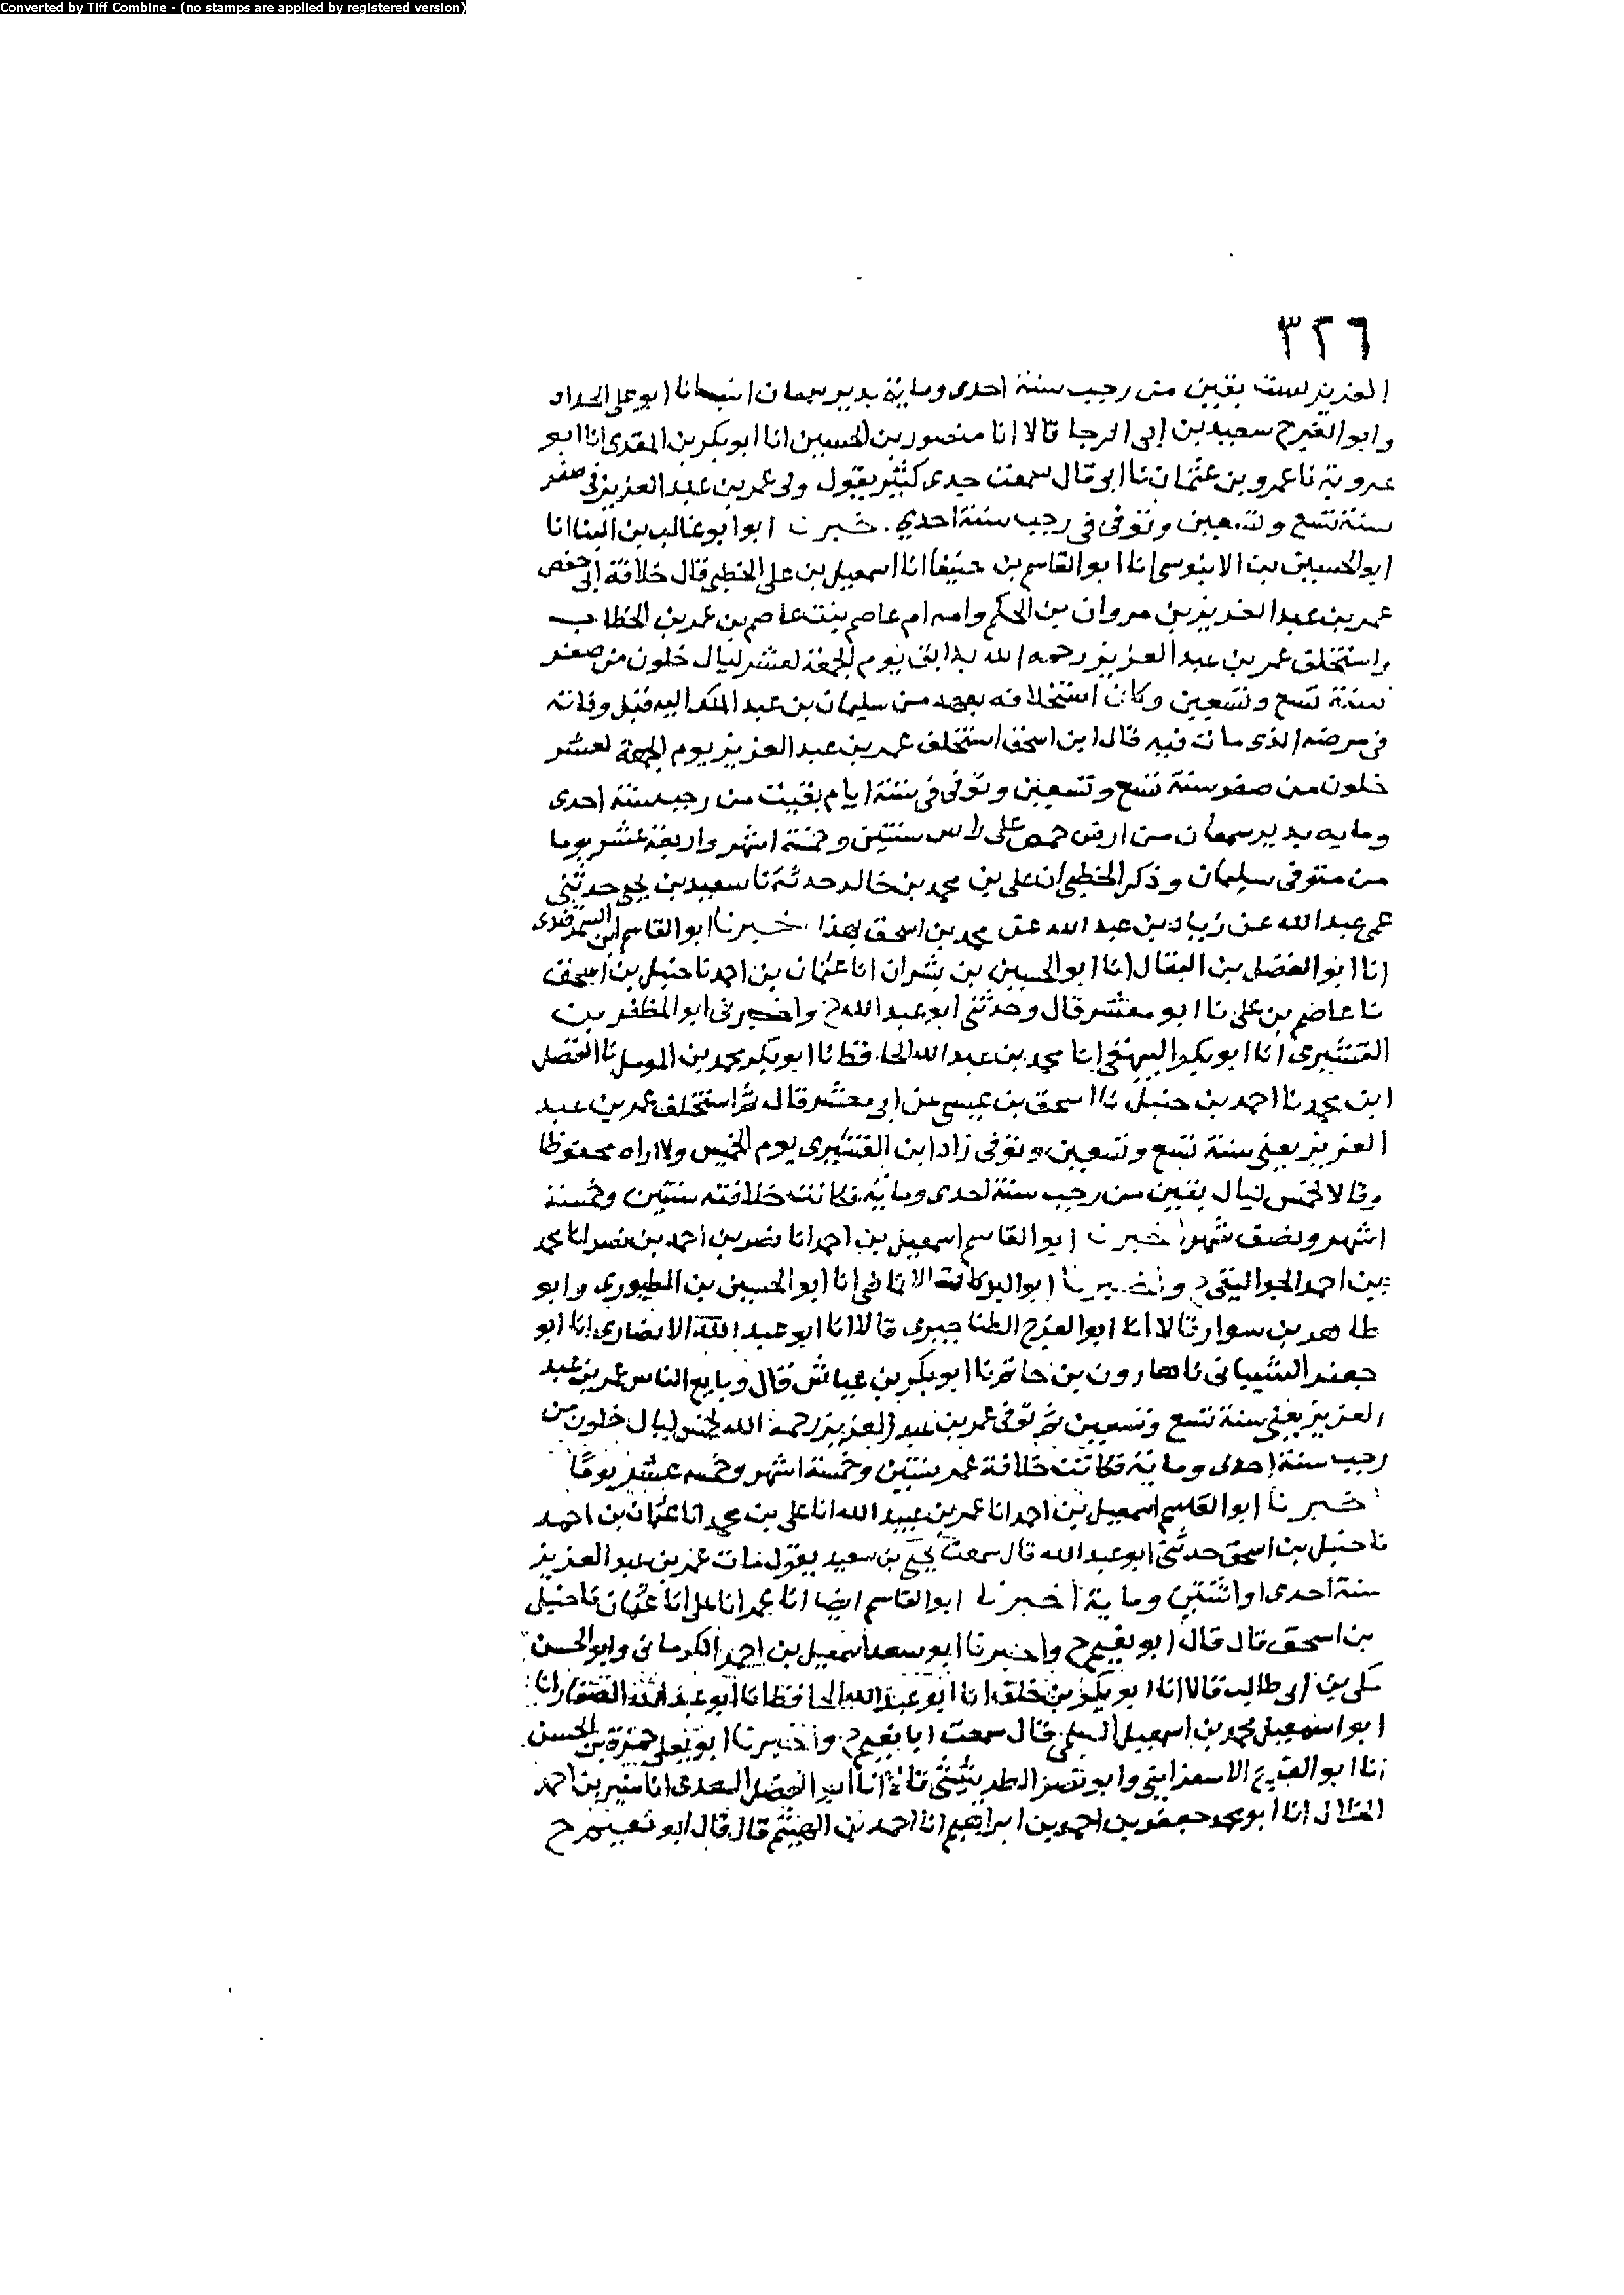 Converted by Tiff Combine - (no stamps are applied by registered version)
٣٢٦
العزيز لست بقين من رجب سنة احدى ومائة بدير سمعان انبانا ابو على الحداد
وابو الفرج سعيد بن ابى الرجا قالا انا منصور بن الحسين انا ابو بكر بن المقرى انا ابو
عروبة نا عمرو بن عثمان نا ابى قال سمعت جدى كثير يقول ولى عمر بن عبد العزيز فى صفر
سنة تسع وتسعين وتوفى فى رجب سنة احدى. خبرنا ابو ابو غالب بن البنا انا
ابو الحسين بن الابنوسى انا ابو القاسم بن حنيفا انا اسمعيل بن على الخطبى قال خلافة ابى حفص
عمر بن عبد العزيز بن مروان بن الحكم وامه ام عاصم بنت عاصم بن عمر بن الخطاب
واستخلف عمر بن عبد العزيز رحمه الله بدابق يوم الجمعة لعشر ليال خلون من صفر
سنة تسع وتسعين وكان استخلافه بعهد من سليمان بن عبد الملك اليه قبل وفاته
فى مرضه الذى مات فيه قال ابن اسحق استخلف عمر بن عبد العزيز يوم الجمعة لعشر
خلون من صفر سنة تسع وتسعين وتوفى فى ستة ايام بقيت من رجب سنة احدى
ومايه بدير سمعان من ارض حمص على راس سنتين وخمسة اشهر واربعة عشر يوما
من متوفى سليمان وذكر الخطبى ان على بن محمد بن خالد حدثه نا سعيد بن يحيى حدثنى
عمى عبد الله عن زياد بن عبد الله عن محمد بن اسحق بهذا. خبرنا ابو القاسم ابن السمرقندى
انا ابو الفضل بن البقال انا ابو الحسين بن بشران انا عثمان بن احمد نا حنبل بن اسحق
نا عاصم بن على نا ابو معشر قال وحدثنى ابو عبد الله ح واخبرنى ابو المظفر بن
القشيرى انا ابو بكر البيهقى انا محمد بن عبد الله الحافظ انا ابو بكر محمد بن المومل نا الفضل
ابن محمد نا احمد بن حنبل نا اسحق بن عيسى عن ابى معشر قال ثم استخلف عمر بن عبد
العزيز يعنى سنة تسع وتسعين وتوفى زاد ابن القشيرى يوم الخميس ولا اراه محفوظا
وقالا لخمس ليال بقين من رجب سنة احدى ومائة فكانت خلافته سنتين وخمسة
اشهر ونصف شهر خبرنا ابو القاسم اسمعيل بن احمد انا نصر بن احمد بن نصر انا محمد
بن احمد الجواليقى ح واخبرنا ابو البركات الانماطى انا ابو الحسين بن الطيورى وابو
طاهر بن سوار قالا انا ابو الفرج الطناجيرى قالا انا ابو عبد الله الانصارى انا ابو
جعفر الشيبانى نا هارون بن حاتم نا ابو بكر بن عياش قال وبايع الناس عمر بن عبد
العزيز يعنى سنة تسع وتسعين ثم توفى عمر بن عبد العزيز رحمة الله لخمس ليال خلون من
رجب سنة احدى ومائة فكانت خلافة عمر سنتين وخمسة اشهر وخمسه عشر يومًا
خبرنا ابو القاسم اسمعيل بن احمد انا عمر بن عبيد الله انا على بن محمد انا عثمان بن احمد
نا حنبل بن اسحق حدثنى ابو عبد الله قال سمعت يحيى بن سعيد يقول مات عمر بن عبد العزيز
سنة احدى او اثنتين وماية اخبرنا ابو القاسم ايضا انا عمر انا على انا عثمان نا حنبل
بن اسحق قال قال ابو نعيم ح واخبرنا ابو سعد اسمعيل بن احمد الكرمانى وابو الحسن
مكى بن ابى طالب قالا انا ابو بكر بن خلف انا ابو عبد الله الحافظ انا ابو عبد الله الصفار نا
ابو اسمعيل محمد بن اسمعيل السلمى قال سمعت ابا نعيم ح واخبرنا ابو يعلى حمزة بن الحسن
انا ابو الفرج الاسفراينى وابو نصر الطريثيثى قالا انا ابو الفضل السعدى انا منير بن احمد
الخلال انا ابو محمد جعفر بن احمد بن ابراهيم انا احمد بن الهيثم قال قال ابو نعيم ح